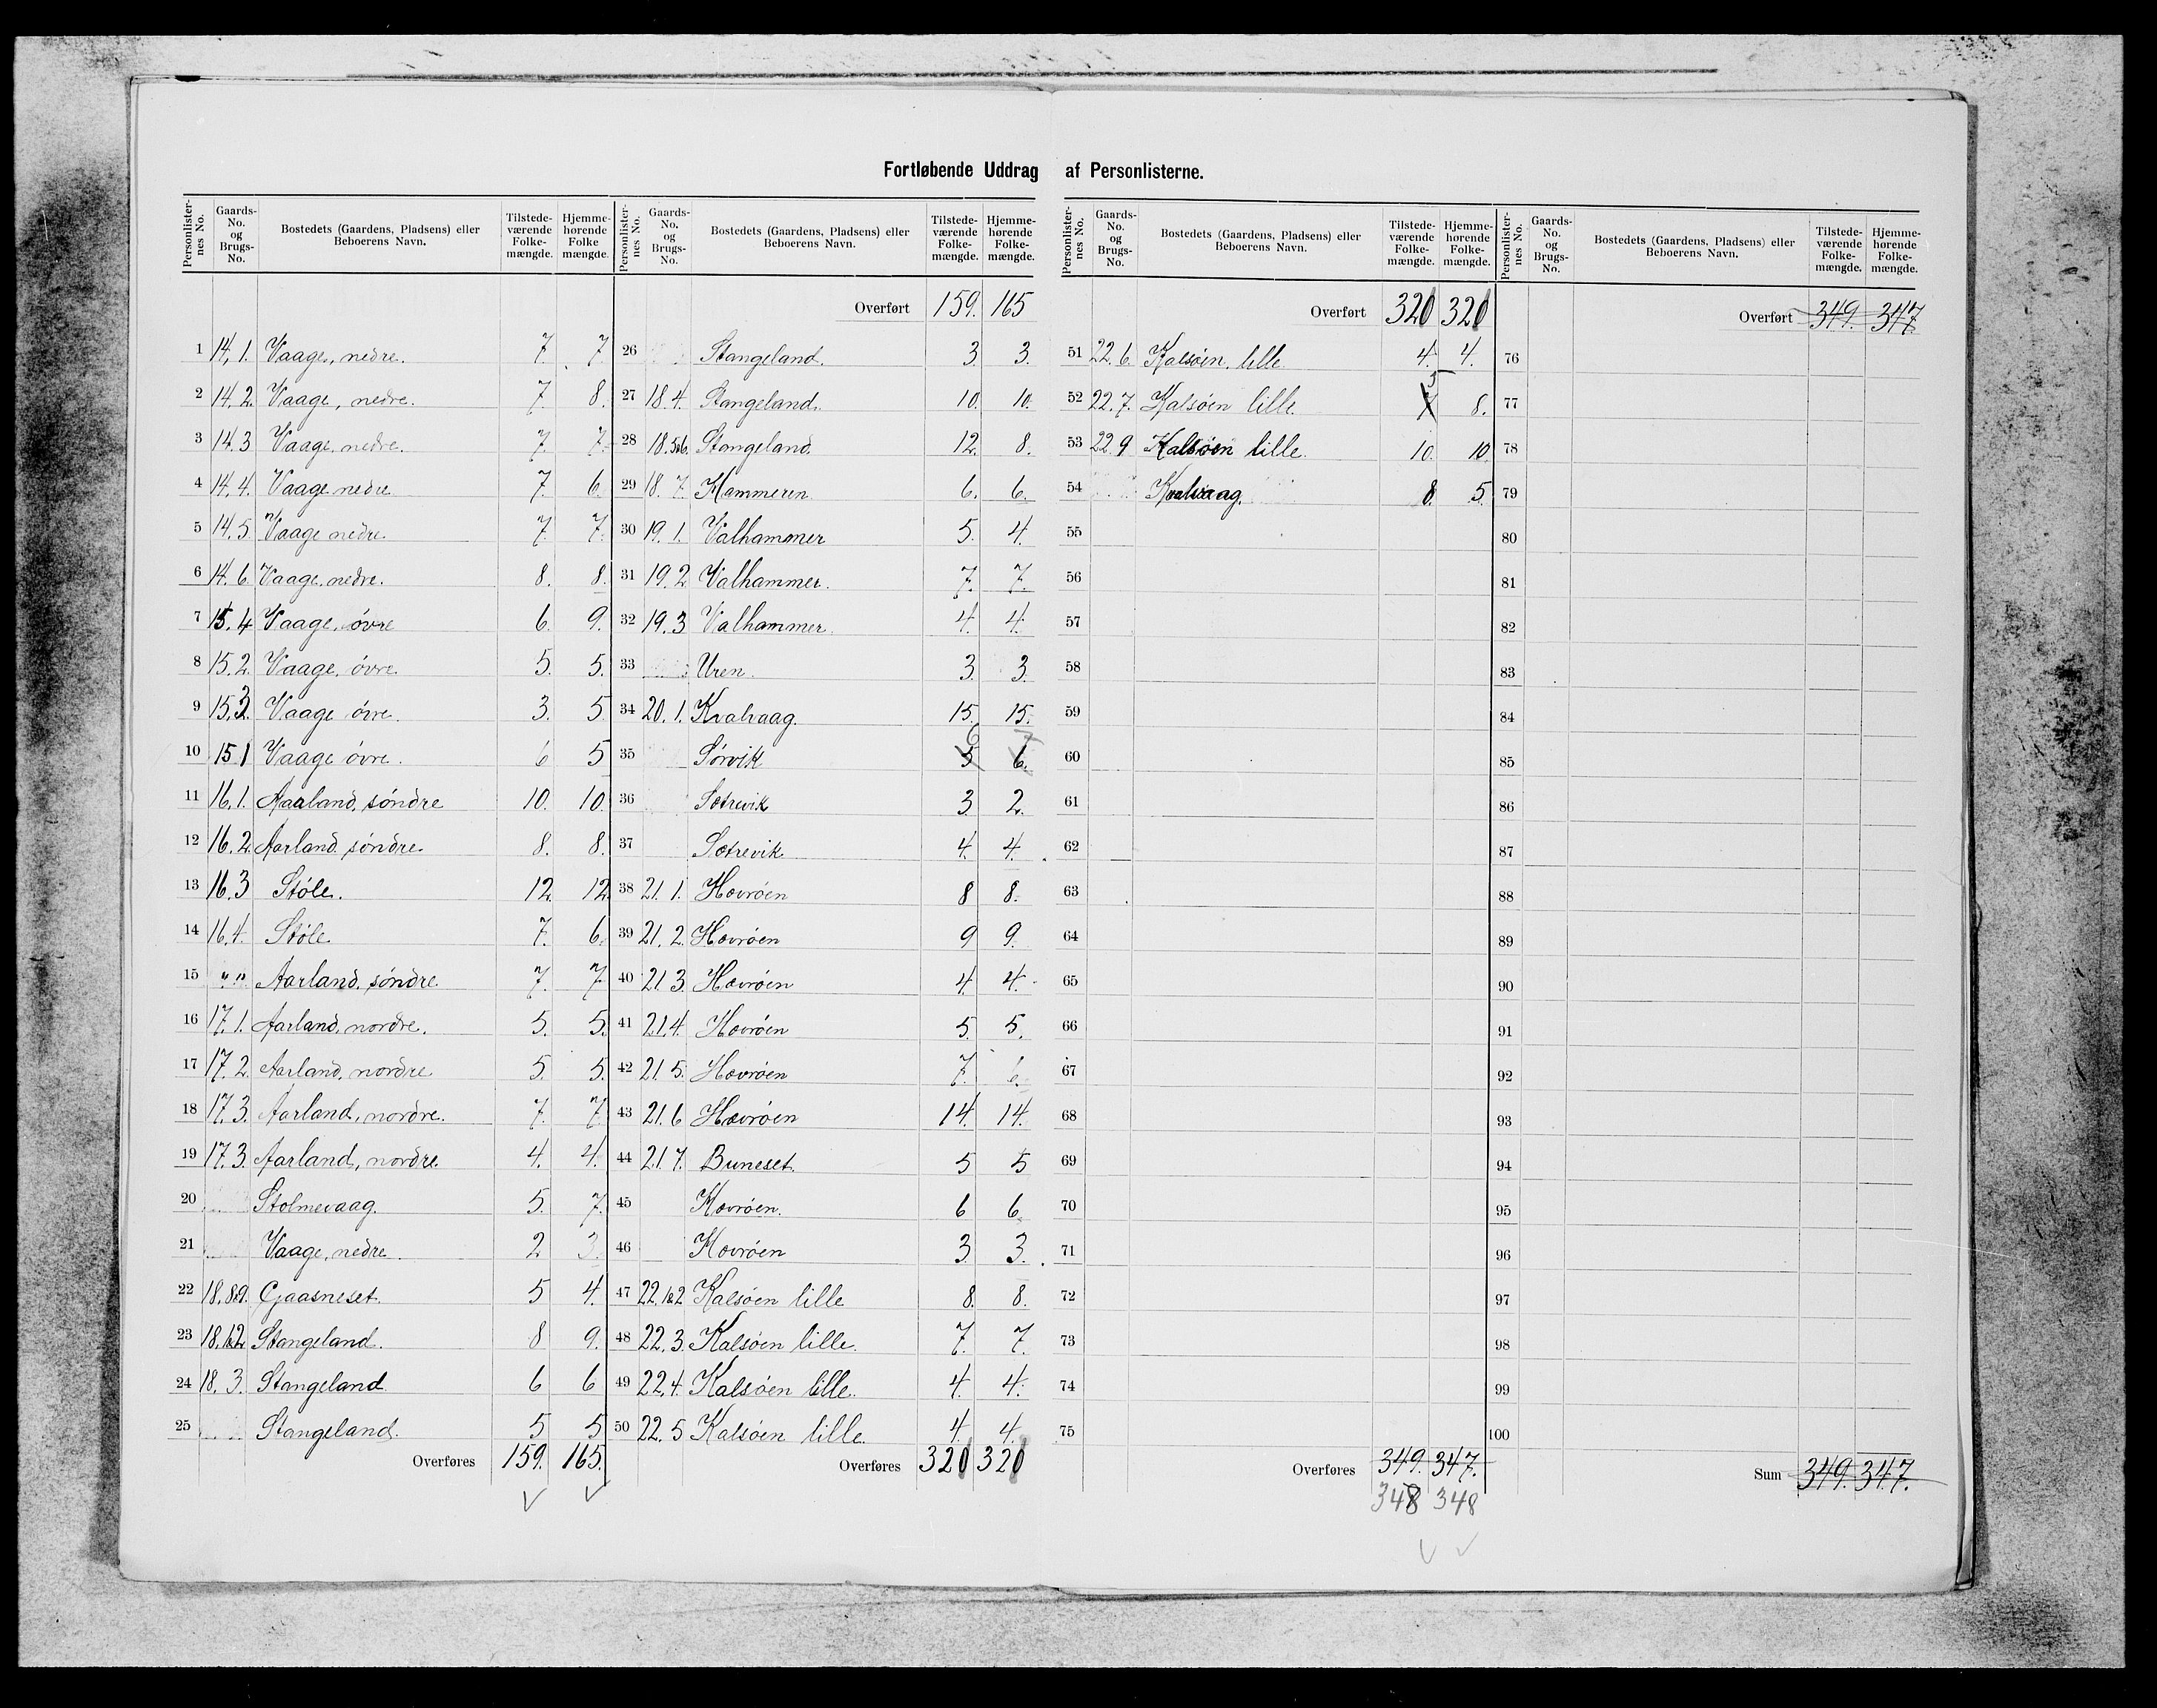 Fortløbende Uddrag af Personlisterne.
Personlister-nes No. Gaards-No. og Brugs-No. Bostedets (Gaardens, Pladsens) eller Beboerens Navn. Tilstede-værende Folke-mængde. Hjemme-hørende Folke mængde.
1 14,1. Vaage, nedre. 7. 7.
2 14.2. Vaage, nedre. 7. 8.
3 14.3 Vaage, nedre. 7. 7.
4 14.4. Vaage nedre 7. 6.
5 14.5. Vaage nedre. 7. 7.
6 14.6. Vaage, nedre. 8. 8.
7 15.4 Vaage, óvre 6. 9.
8 15.2. Vaage, óvre 5. 5.
9 15.3. Vaage óvre. 3. 5.
10 15 1 Vaage óvre. 6 5
11 16.1. Aarland, søndre 10. 10.
12 16.2. Aarland søndre. 8. 8.
13 16.3 Støle. 12. 12.
14 16.4. Støle 7. 6.
15 " " Aarland, søndre 7. 7
16 17.1. Aarland, nordre. 5. 5.
17 17.2. Aarland, nordre 5. 5.
18 17.3. Aarland, nordre. 7. 7.
19 17.3. Aarland, nordre. 4. 4.
20 Stolmevaag. 5. 7.
21 Vaage, nedre. 2 3.
22 18.8&9. Gaasneset. 5 4.
23 18.1&2. Stangeland. 8 9.
24 18.3. Stangeland 6 6
25 Stangeland. 5 5
Overføres 159. 165.
Personlister-nes No. Gaards-No. og Brugs-No. Bostedets (Gaardens, Pladsens) eller Beboerens Navn. Tilstede-værende Folke-mængde. Hjemme-hørende Folke-mængde.
Overført 159. 165
26 Stangeland. 3. 3.
27 18.4. Stangeland. 10. 10.
28 18.5&6. Stangeland. 12. 8.
29 18.7. Hammeren 6. 6.
30 19.1. Valhammer 5. 4.
31 19.2. Valhammer. 7. 7.
32 19.3 Valhammer. 4. 4.
33 Uren. 3. 3.
34 20.1. Kvalvaag. 15. 15.
6 7
35 Sørvik 5 6.
36 Sætrevik 3. 2.
37 Sætrevik 4. 4.
38 21.1. Hovrøen 8 8.
39 21.2. Hovrøen 9 9.
40 21.3. Hovrøen 4. 4.
41 21.4. Hovrøen 5. 5.
42 21.5. Hovrøen 7. 6.
43 21.6 Hovrøen 14. 14.
44 21.7. Buneset. 5 5
45 Hovrøen. 6 6.
46 Hovrøen 3. 3.
47 22.1&2 Kalsøen lille 8. 8.
48 22.3. Kalsøen lille. 7. 7.
49 22.4. Kalsøen lille. 4. 4.
50 22.5 Kalsøen lille. 4. 4.
Overføres 320 320
Personlister-nes No. Gaards-No. og Brugs-No. Bostedets (Gaardens, Pladsens) eller Beboerens Navn. Tilstede-værende Folke-mængde. Hjemme-hørende Folke-mængde.
Overført 320 320
51 22.6. Kalsøen, lille. 4. 4.
5
52 22.7. Kalsøen lille. 7 8.
53 22.9 Kalsøen lille. 10. 10.
54 Kvalvaag. 8. 5.
55
56
57
58
59
60
61
62
63
64
65
66
67
68
69
70
71
72
73
74
75
Overføres 349. 347.
348 348
Personlister-nes No. Gaards-No. og Brugs-No. Bostedets (Gaardens, Pladsens) eller Beboerens Navn. Tilstede-værende Folke-mængde. Hjemme-hørende Folke-mængde.
Overført 349. 347
76
77
78
79
80
81
82
83
84
85
86
87
88
89
90
91
92
93
94
95
96
97
98
99
100
Sum 349. 347.